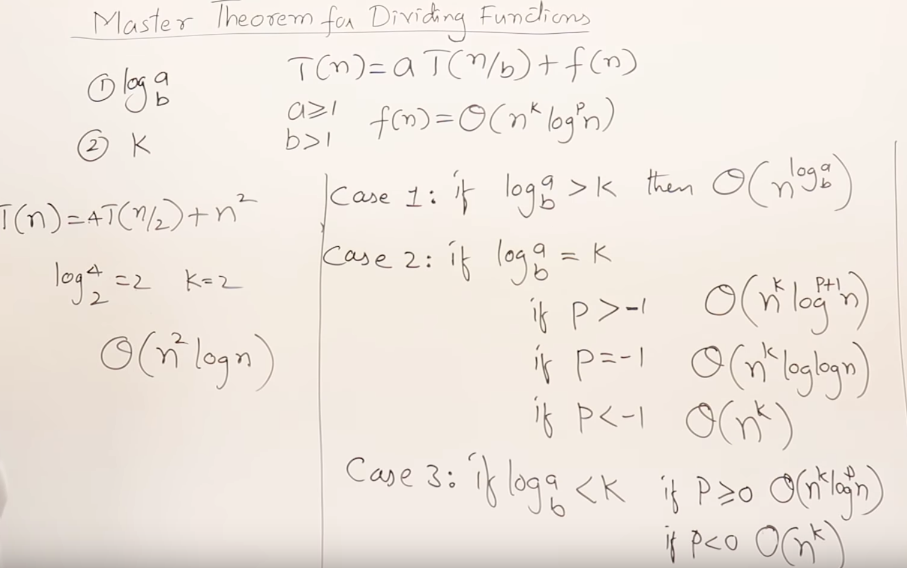 Master Theorem for Dividing Functions
① log_b^a
② K
T(n) = a T(n/b) + f(n)
a≥1
b>1
f(n) = Θ(n^k log^p n)
T(n) = 4T(n/2) + n^2
log_2^4 = 2 K=2
Θ(n^2 log n)
Case 1: if log_b^a > K then Θ(n^{log_b^a})
Case 2: if log_b^a = K
if P > -1 Θ(n^k log^{P+1} n)
if P = -1 Θ(n^k log log n)
if P < -1 Θ(n^k)
Case 3: if log_b^a < K if P ≥ 0 Θ(n^k log^p n)
if P < 0 Θ(n^k)